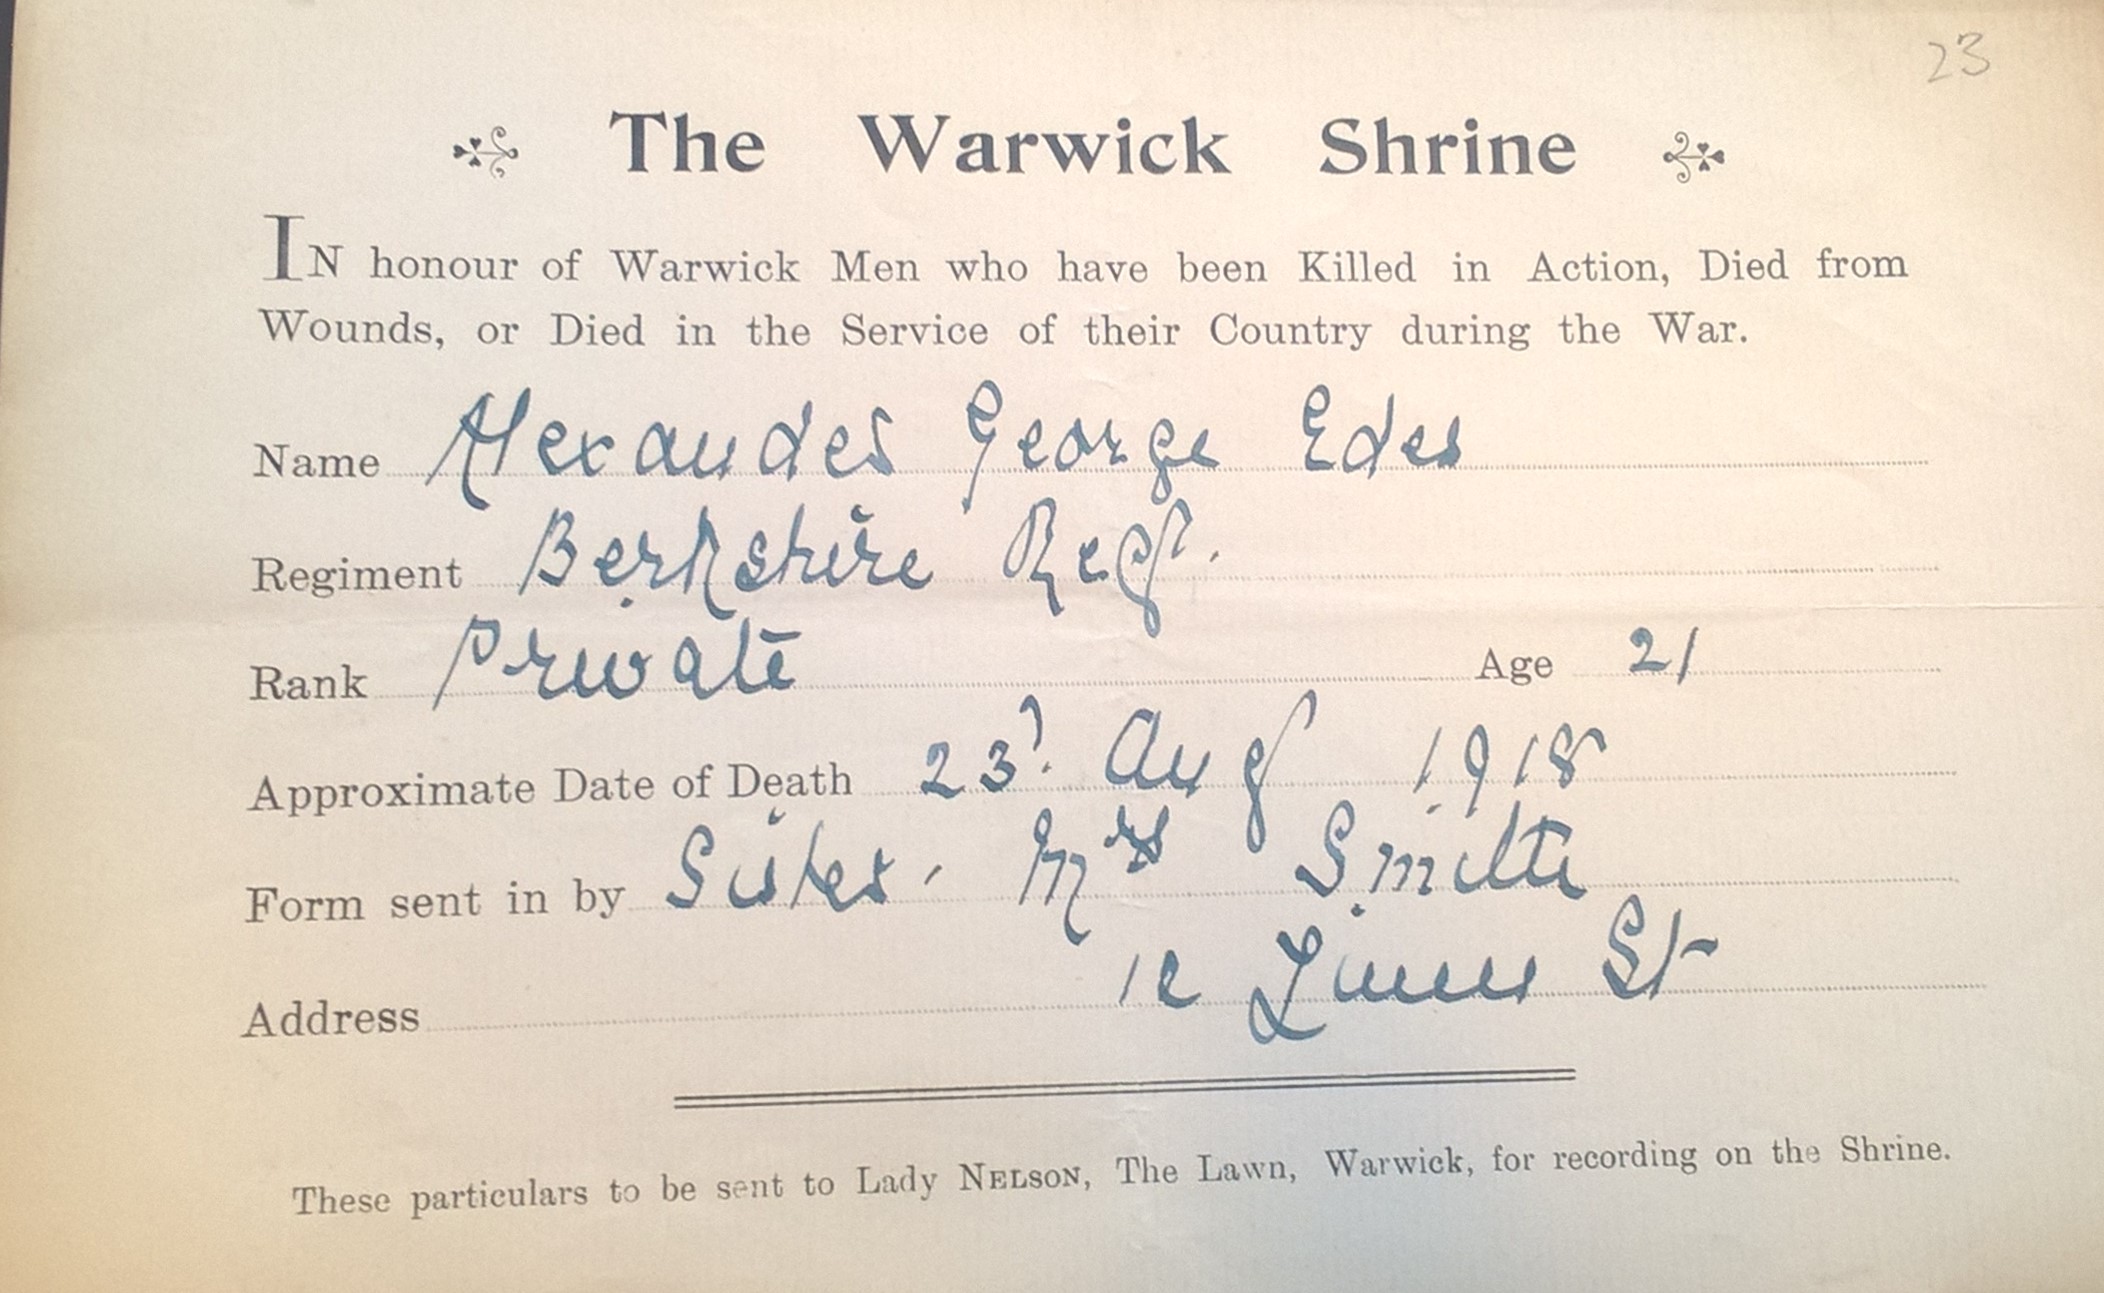 23
The Warwick Shrine
IN honour of Warwick Men who have been Killed in Action, Died from
Wounds, or Died in the Service of their Country during the War.
Name Alexander George Edes
Regiment Berkshire Regt.
Rank Private Age 21
Approximate Date of Death 23 Aug 1918
Form sent in by Sister. Mrs Smith
Address 12 Linen St
These particulars to be sent to Lady NELSON, The Lawn, Warwick, for recording on the Shrine.